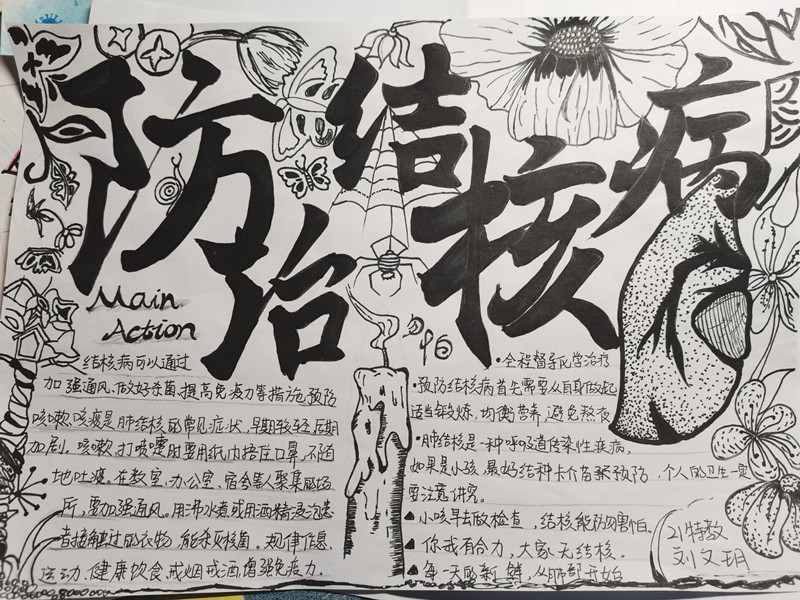 防治结核病
Main
Action
结核病可以通过
加强通风、做好杀菌、提高免疫力等措施预防
咳嗽、咳痰是肺结核的常见症状,早期较轻后期
加剧。咳嗽、打喷嚏时要用纸巾捂住口鼻,不随
地吐痰。在教室、办公室、宿舍等人聚集的场
所,要加强通风。用沸水煮或用酒精浸泡患
者接触过的衣物,能杀灭核菌。规律作息、
运动、健康饮食、戒烟戒酒,增强免疫力.
•全程督导化学治疗
•预防结核病首先需要从自身做起
适当锻炼,均衡营养,避免熬夜
•肺结核是一种呼吸道传染性疾病,
如果是小孩,最好结种卡介苗来预防,个人的卫生一定
要注意讲究。
▲小咳早去做检查,结核能防勿害怕.
▲你我有合力,大家无结核.
▲每一天的新鲜,从肺部开始
21特教
刘文玥